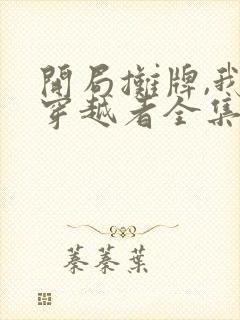 開局攤牌,我
穿越者全集
蓁蓁葉